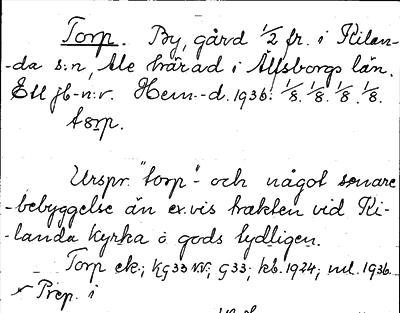 Torp. By, gård 1/2 fr. i Kilan-
-da s:n, Ale härad i Älfsborgs län.
Ett jb-n:r. Hem-d. 1936: 1/8. 1/8. 1/8. 1/8.
torp.
Urspr. "torp"- och något senare
-bebyggelse än ex.vis trakten vid Ki-
-landa kyrka o gods tydligen.
Torp ek.; kg33 NV; G33; kb. 1924; ml. 1936
Prep. i